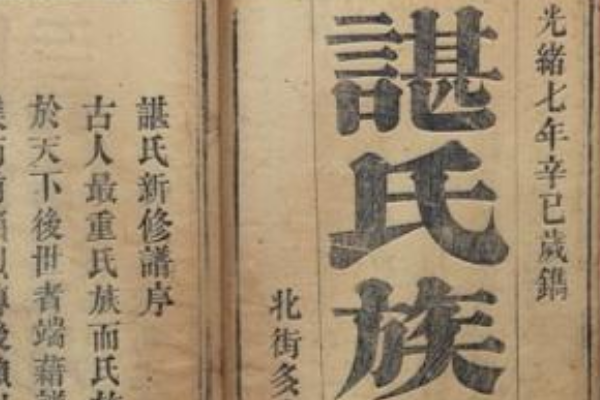 光緒七年辛巳歲鐫
諶氏族
北街
諶氏新修譜序
古人最重氏族而氏
於天下後世者端藉